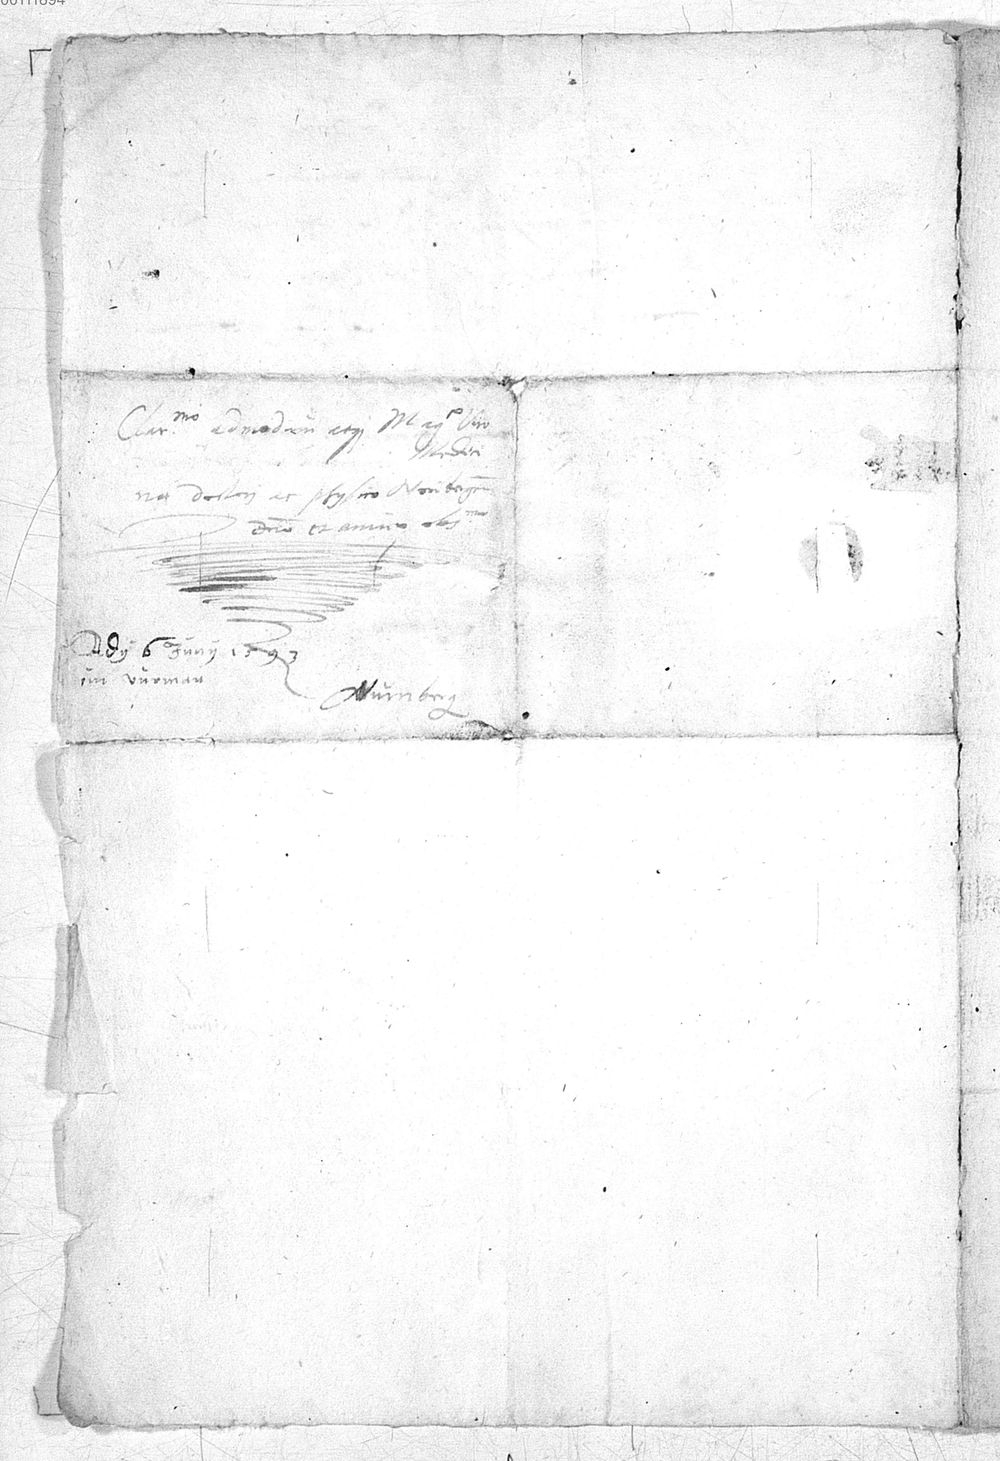 Clar.mo admodum atq; Mag.co Viro
Medici
nae doctori ac physico Noribergen
Dno et amico obs.mo
Ady 6 Juny 1593
Nürnberg